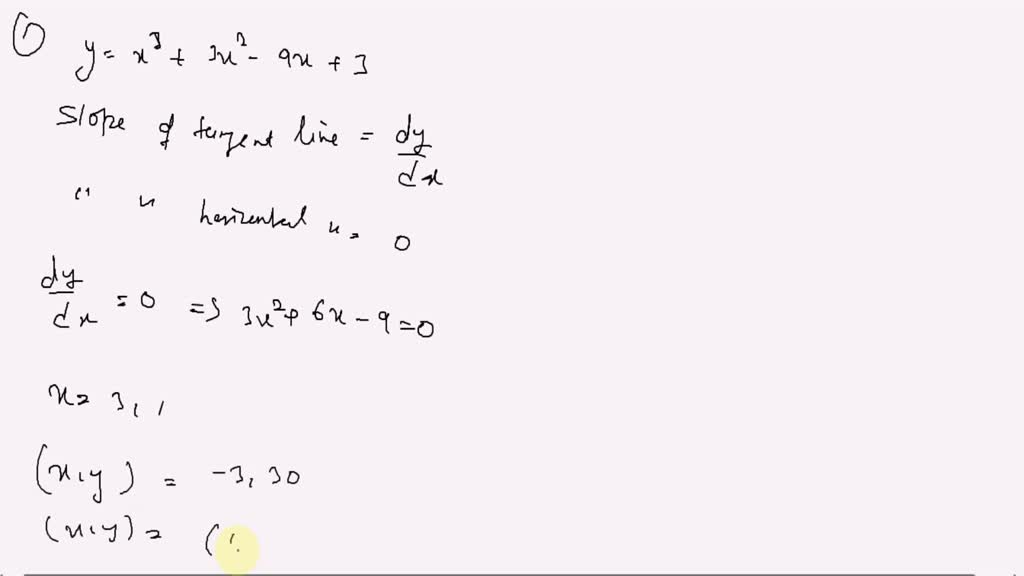 ①
y = x³ + 3x² - 9x + 3
Slope of tangent line = dy/dx
" " horizental " = 0
dy/dx = 0 => 3x² + 6x - 9 = 0
x = 3, 1
(x, y) = -3, 30
(x, y) = (1,